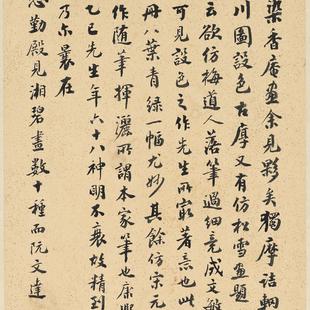 染香庵畫余見夥矣獨摩詰輞
川圖設色古厚又有仿松雪畫題
云欲仿梅道人落筆過細竟成文敏
可見設色之作先生所最著意也此
冊八葉青綠一幅尤妙其餘仿宋元
作隨筆揮灑所謂本家筆也康熙
乙巳先生年六十八神明不衰故精到
乃尒曩在
懋勤殿見湘碧畫數十種而阮文達